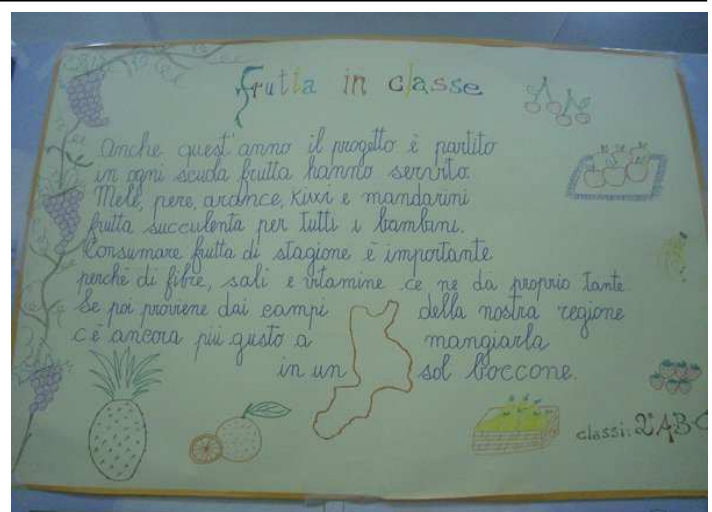 Frutta in classe
Anche quest'anno il progetto è partito
in ogni scuola frutta hanno servito.
Mele, pere, arance, kiwi e mandarini
frutta succulenta per tutti i bambini.
Consumare frutta di stagione è importante
perché di fibre, sali e vitamine ce ne da proprio tante.
Se poi proviene dai campi della nostra regione
c'è ancora più gusto a mangiarla
in un sol boccone.
classi: 2ª A B C